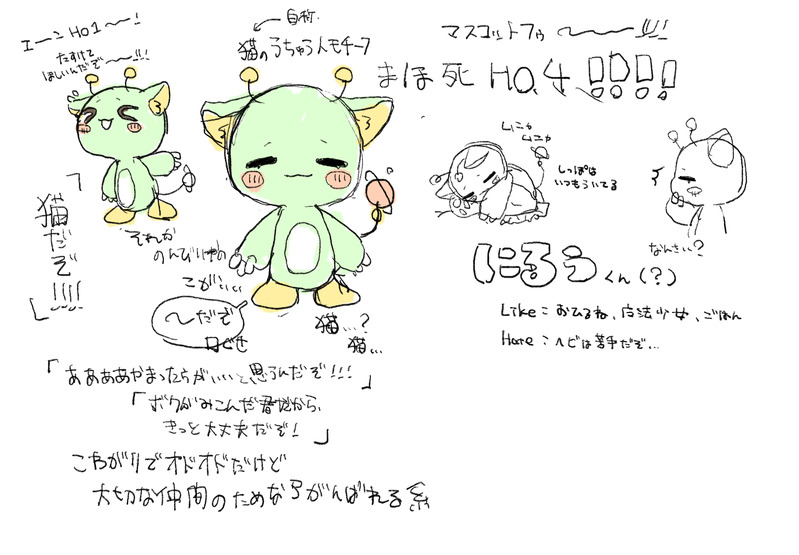 エーンHO1〜!
たすけて
ほしいんだぞ〜!!!
自称
猫のうちゅう人モチーフ
マスコットフゥ〜!!!
まほ死 HO.4 !!!!
ムニャ
ムニャ
しっぽは
いつもういてる
なんさい?
「猫だぞ!!!!」
それか
のんびりやの
こが…
〜だぞ
口ぐせ
猫…?
猫…
にるうくん(?)
Like:おひるね、魔法少女、ごはん
Hate:ヘビは苦手だぞ…
「ああああやまったらがいいと思うんだぞ!!!」
「ボクがみこんだ君だから、
きっと大丈夫だぞ!」
こわがりでオドオドだけど
大切な仲間のためならがんばれる系